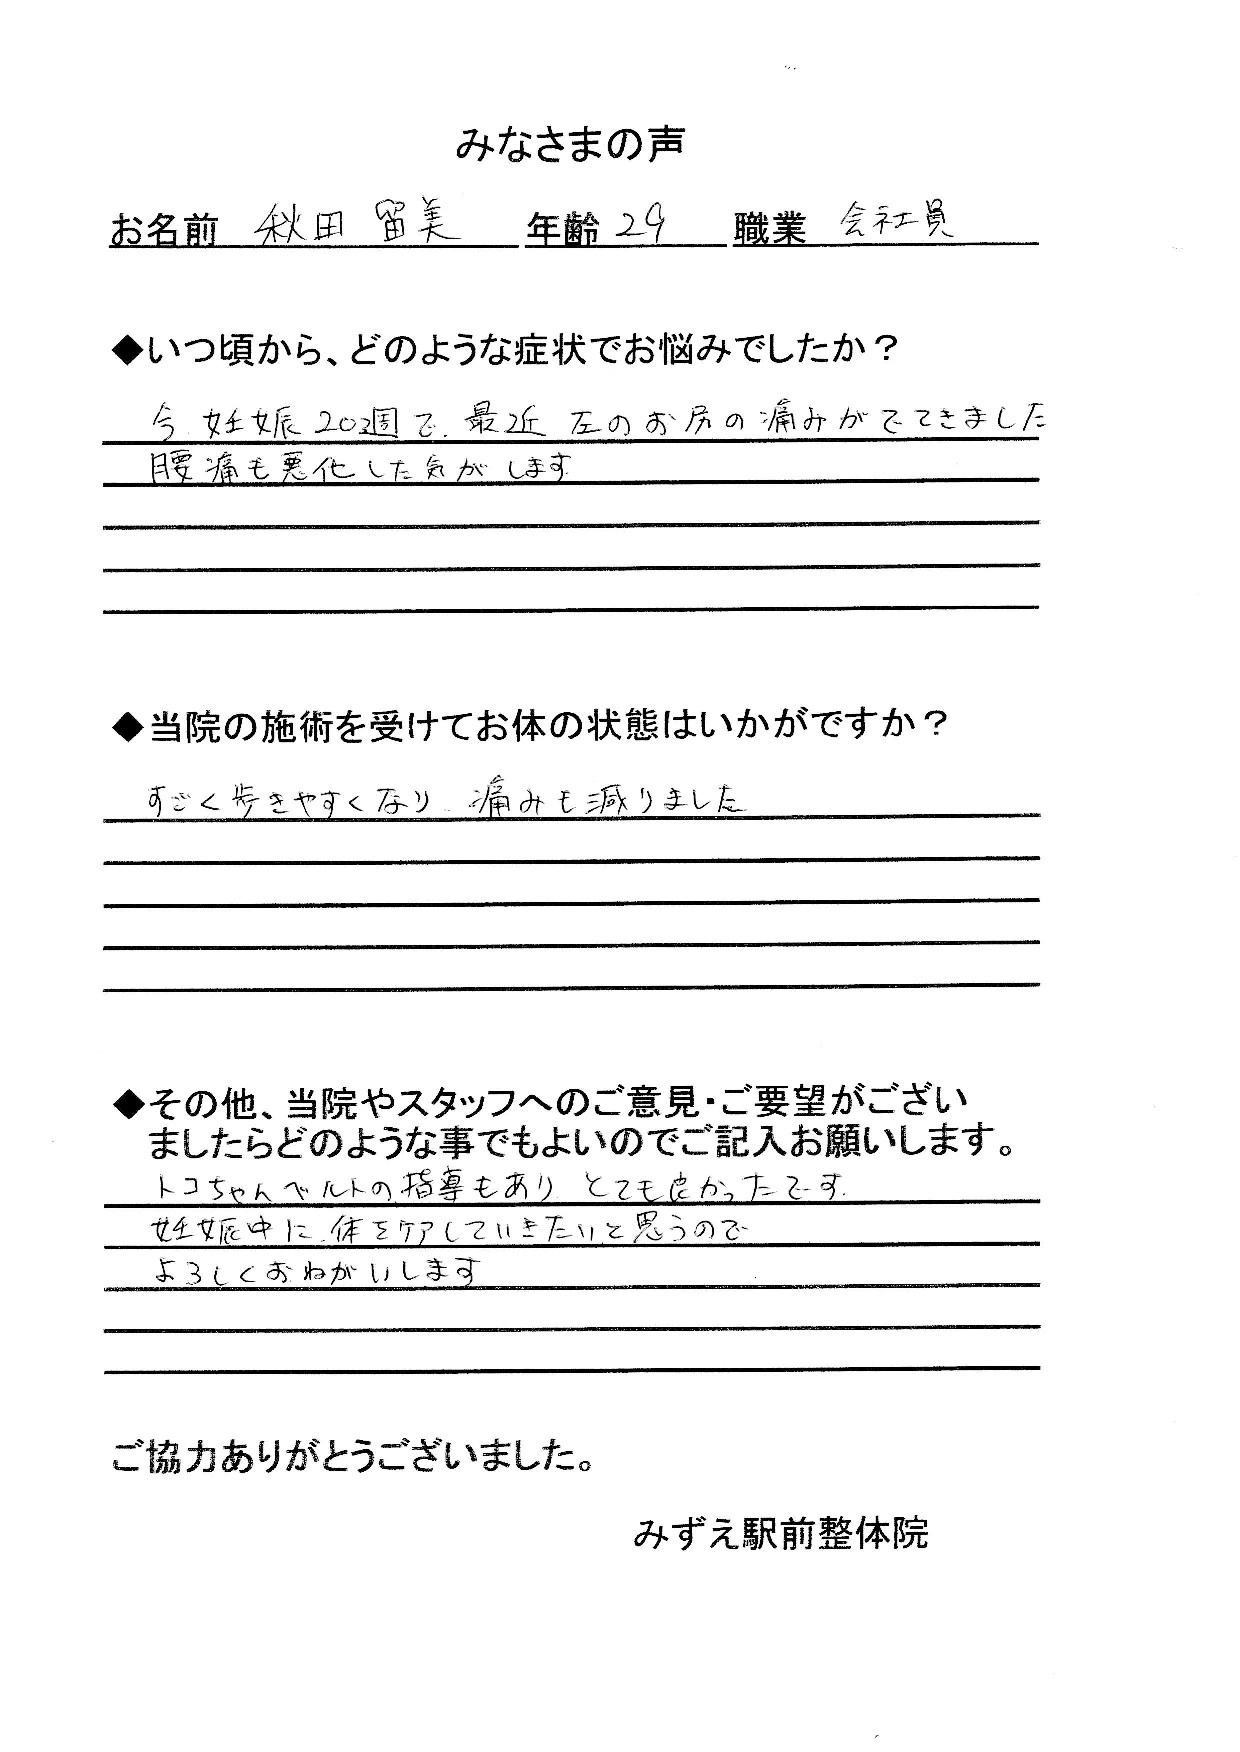 みなさまの声
お名前 秋田 留美 年齢 29 職業 会社員
◆いつ頃から、どのような症状でお悩みでしたか？
今 妊娠 20週で 最近 左のお尻の痛みがでてきました
腰痛も悪化した気がします
◆当院の施術を受けてお体の状態はいかがですか？
すごく歩きやすくなり 痛みも減りました
◆その他、当院やスタッフへのご意見・ご要望がござい
ましたらどのような事でもよいのでご記入お願いします。
トコちゃんベルトの指導もあり とても良かったです
妊娠中に 体をケアしていきたいと思うので
よろしくおねがいします
ご協力ありがとうございました。
みずえ駅前整体院